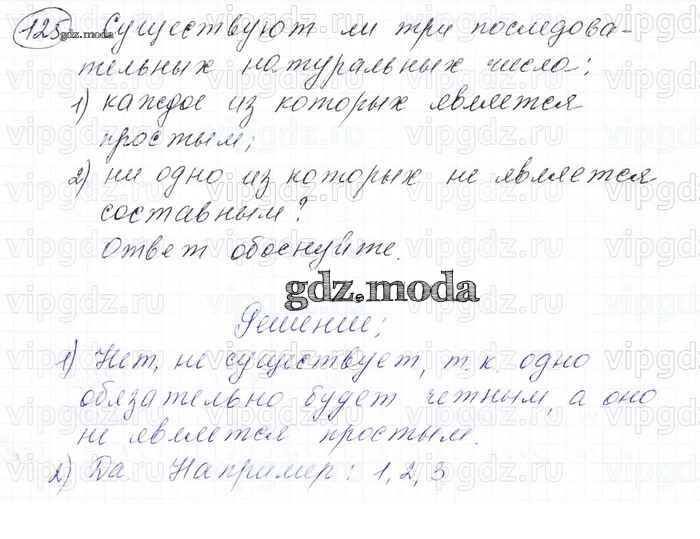 125 gdz.moda Существуют ли три последова-
тельных натуральных числа:
1) каждое из которых является
простым;
2) ни одно из которых не является
составным?
Ответ обоснуйте.
gdz.moda
Решение:
1) Нет, не существует, т.к. одно
обязательно будет четным, а оно
не является простым.
2) Да. Например: 1, 2, 3